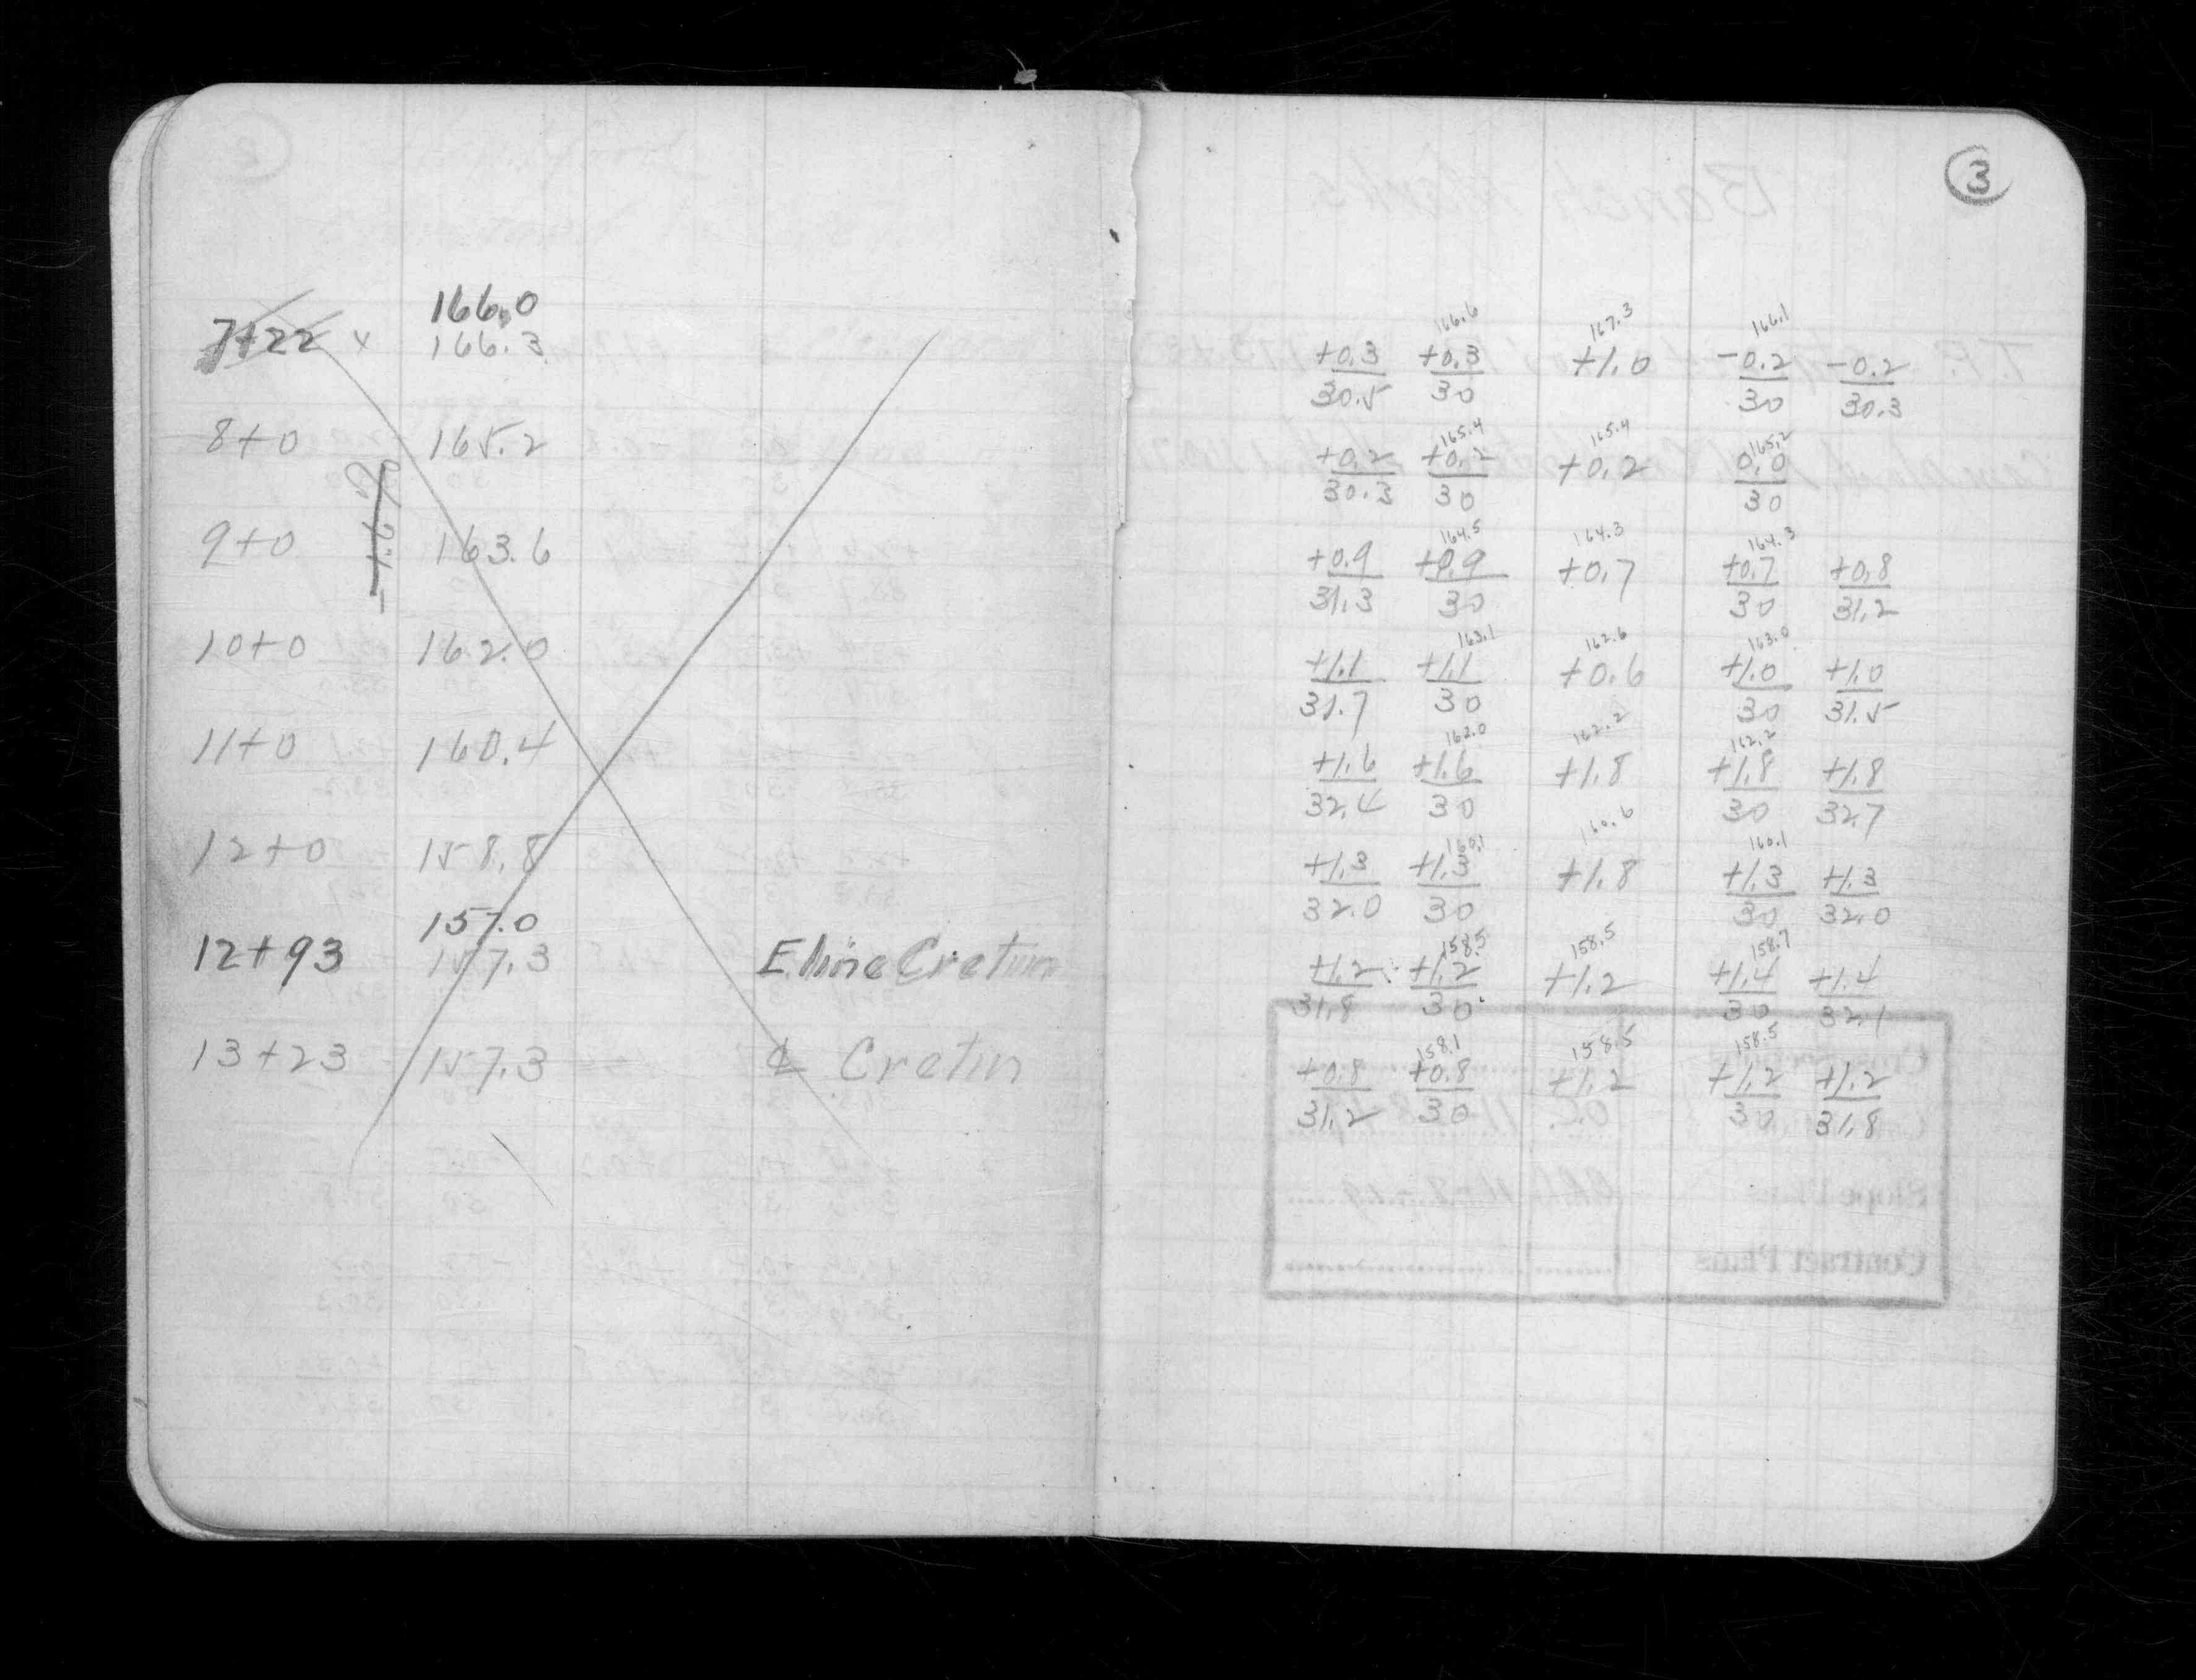 3
166.0
7+22 x 166.3
8+0 165.2
9+0 163.6
10+0 162.0
11+0 160.4
12+0 158.8
157.0
12+93 157.3 E. line Cretin
13+23 157.3 ℄ Cretin
166.6 167.3 166.1
+0.3 +0.3 +1.0 -0.2 -0.2
30.5 30 30 30.3
165.4 165.4 165.2
+0.2 +0.2 +0.2 0.0
30.3 30 30
164.5 164.3 164.3
+0.9 +0.9 +0.7 +0.7 +0.8
31.3 30 30 31.2
163.1 162.6 163.0
+1.1 +1.1 +0.6 +1.0 +1.0
31.7 30 30 31.5
162.0 162.2 162.2
+1.6 +1.6 +1.8 +1.8 +1.8
32.4 30 30 32.7
160.1 160.6 160.1
+1.3 +1.3 +1.8 +1.3 +1.3
32.0 30 30 32.0
158.5 158.5 158.7
+1.2 +1.2 +1.2 +1.4 +1.4
31.8 30 30 32.1
158.1 158.5 158.5
+0.8 +0.8 +1.2 +1.2 +1.2
31.2 30 30 31.8